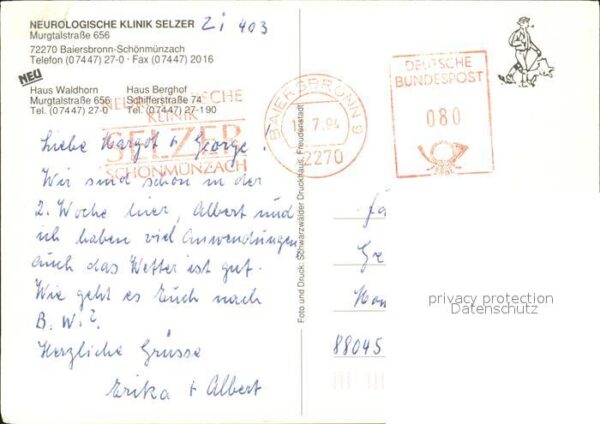 NEUROLOGISCHE KLINIK SELZER
Zi 403
Murgtalstraße 656
72270 Baiersbronn-Schönmünzach
Telefon (07447) 27-0 · Fax (07447) 2016
NEU
Haus Waldhorn Haus Berghof
Murgtalstraße 656 Schifferstraße 74
Tel. (07447) 27-0 Tel. (07447) 27-190
NEUROLOGISCHE
KLINIK
SELZER
SCHÖNMÜNZACH
BAIERSBRONN 9
7.94
72270
DEUTSCHE
BUNDESPOST
080
Liebe Margot + George!
Wir sind schon in der
2. Woche hier, Albert und
ich haben viel Anwendungen
auch das Wetter ist gut.
Wie geht es Euch nach
B.W.?
Herzliche Grüsse
Erika + Albert
Foto und Druck: Schwarzwälder Druckhaus, Freudenstadt
88045
privacy protection
Datenschutz